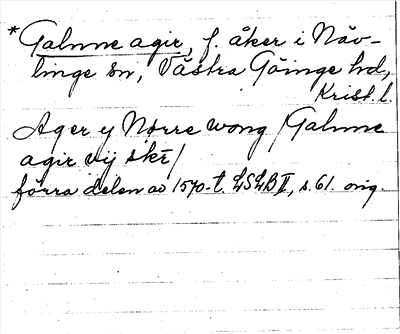 *Galnne agir, f. åker i Näv-
linge sn, Västra Göinge hd,
Krist. l.
Ager y Nørre wong /Galnne
agir vij skr/
förra delen av 1570-t. LSLB II, s. 61. orig.